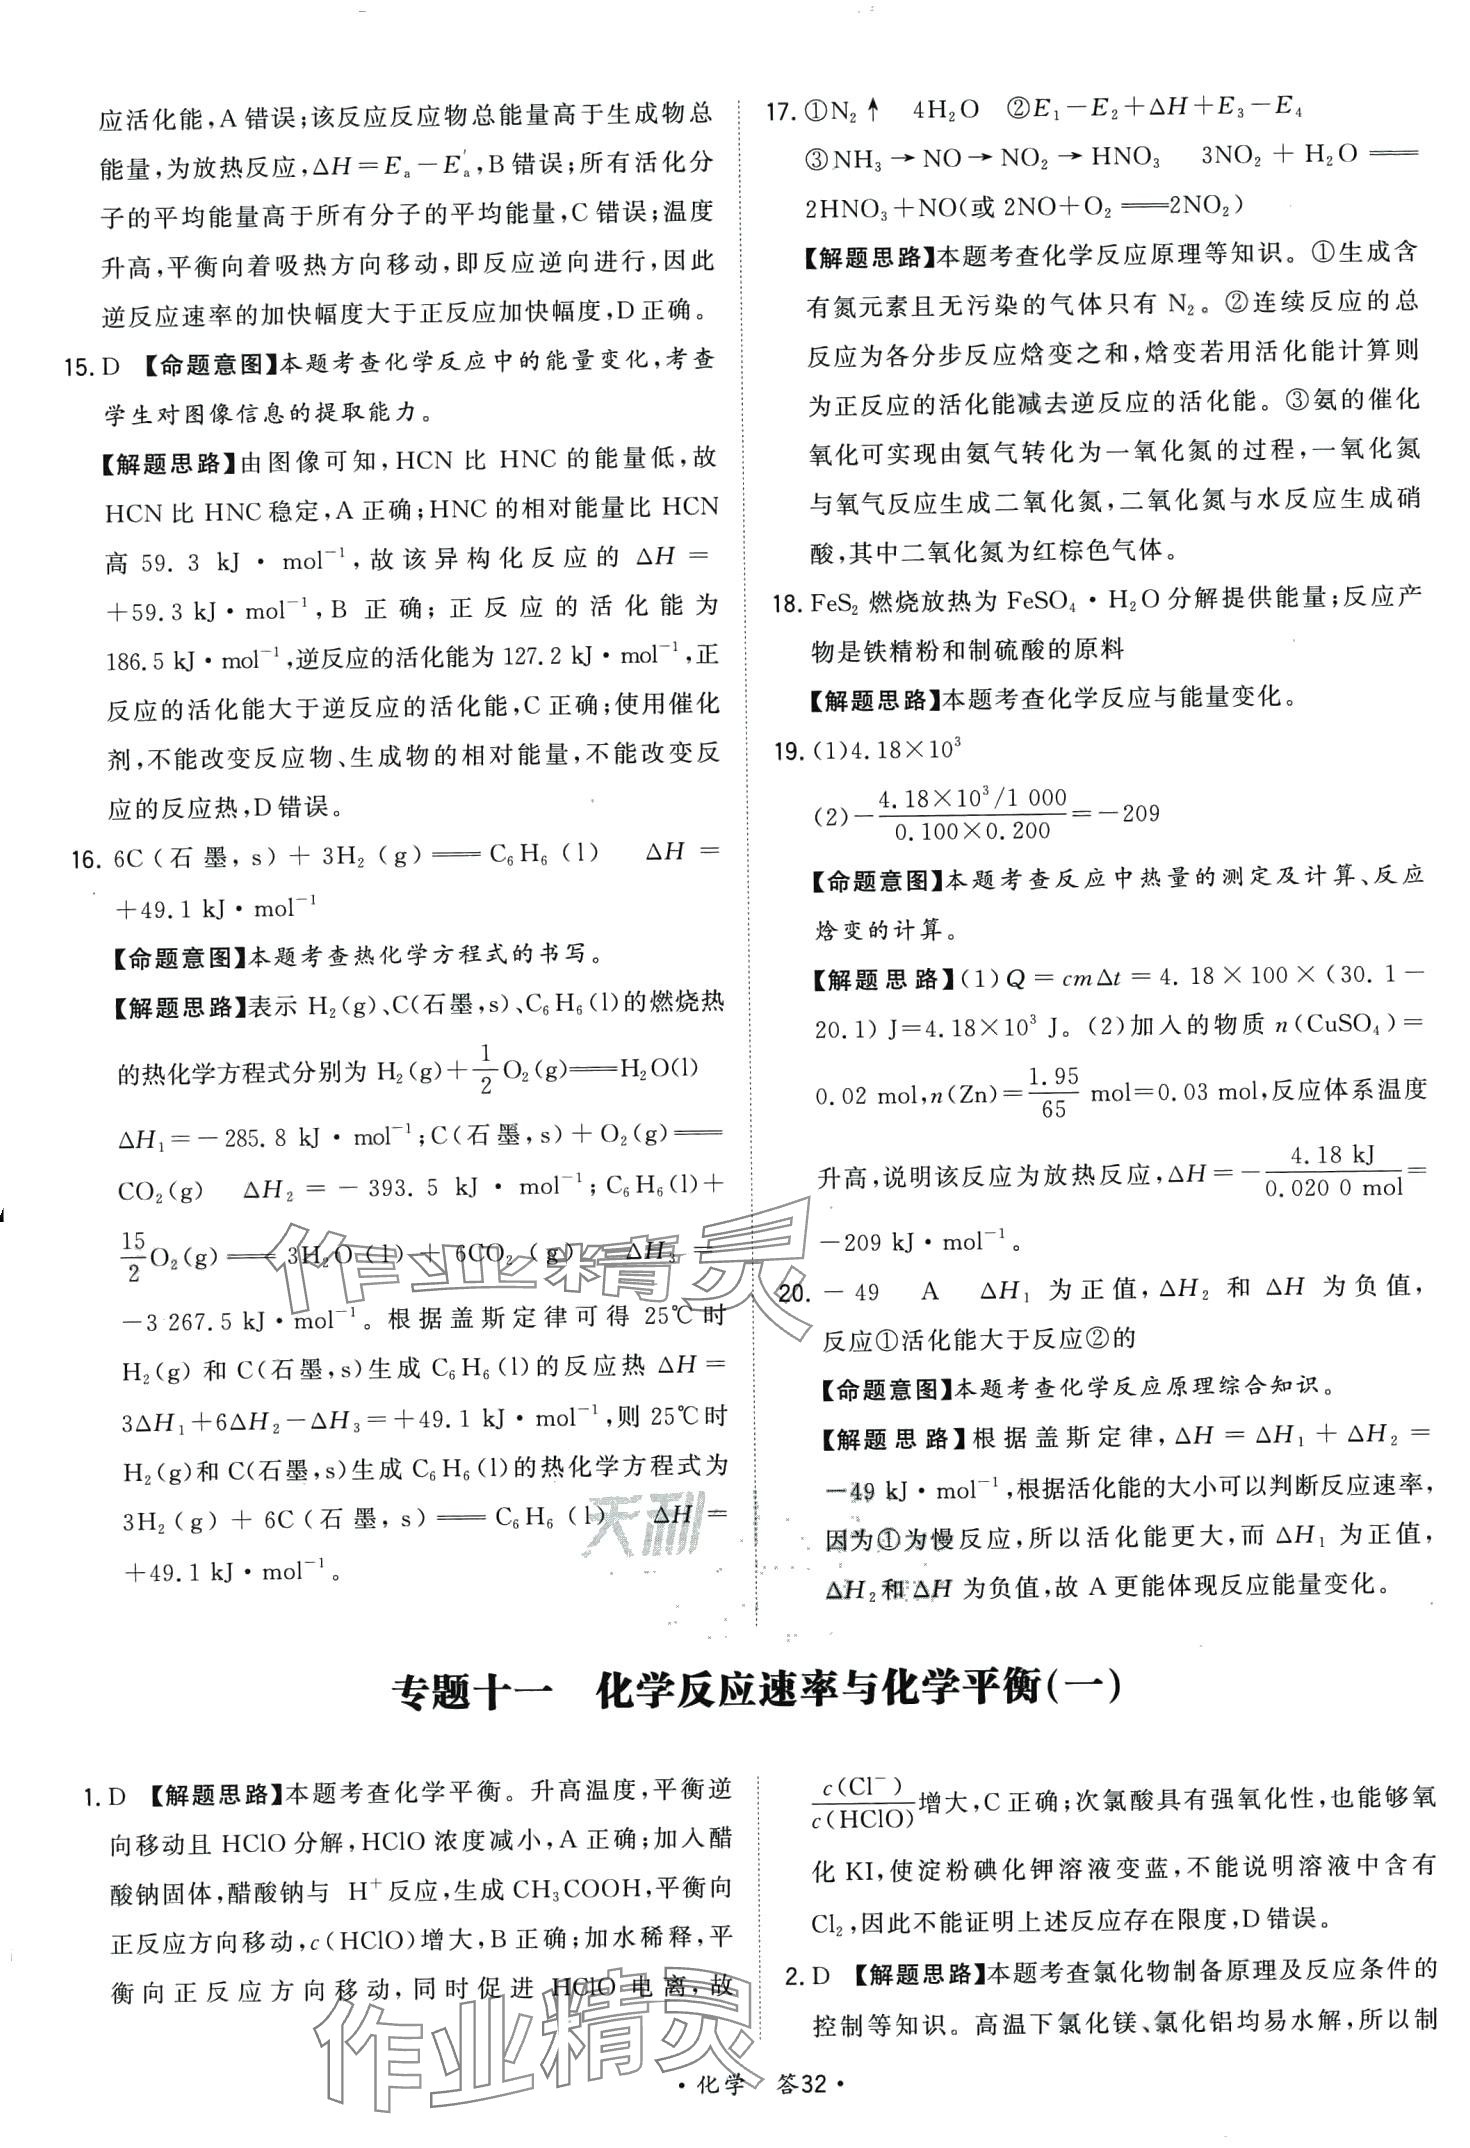 应活化能,A错误;该反应反应物总能量高于生成物总
能量,为放热反应,ΔH=Eₐ-E′ₐ,B错误;所有活化分
子的平均能量高于所有分子的平均能量,C错误;温度
升高,平衡向着吸热方向移动,即反应逆向进行,因此
逆反应速率的加快幅度大于正反应加快幅度,D正确。
15. D 【命题意图】本题考查化学反应中的能量变化,考查
学生对图像信息的提取能力。
【解题思路】由图像可知,HCN比HNC的能量低,故
HCN比HNC稳定,A正确;HNC的相对能量比HCN
高59.3 kJ·mol⁻¹,故该异构化反应的ΔH=
+59.3 kJ·mol⁻¹,B正确;正反应的活化能为
186.5 kJ·mol⁻¹,逆反应的活化能为127.2 kJ·mol⁻¹,正
反应的活化能大于逆反应的活化能,C正确;使用催化
剂,不能改变反应物、生成物的相对能量,不能改变反
应的反应热,D错误。
16. 6C(石墨,s)+3H₂(g)══C₆H₆(l) ΔH=
+49.1 kJ·mol⁻¹
【命题意图】本题考查热化学方程式的书写。
【解题思路】表示H₂(g)、C(石墨,s)、C₆H₆(l)的燃烧热
的热化学方程式分别为H₂(g)+1/2O₂(g)══H₂O(l)
ΔH₁=-285.8 kJ·mol⁻¹;C(石墨,s)+O₂(g)══
CO₂(g) ΔH₂=-393.5 kJ·mol⁻¹;C₆H₆(l)+
15/2O₂(g)══3H₂O(l)+6CO₂(g) ΔH₃=
-3 267.5 kJ·mol⁻¹。根据盖斯定律可得25℃时
H₂(g)和C(石墨,s)生成C₆H₆(l)的反应热ΔH=
3ΔH₁+6ΔH₂-ΔH₃=+49.1 kJ·mol⁻¹,则25℃时
H₂(g)和C(石墨,s)生成C₆H₆(l)的热化学方程式为
3H₂(g)+6C(石墨,s)══C₆H₆(l) ΔH=
+49.1 kJ·mol⁻¹。
17. ①N₂↑ 4H₂O ②E₁-E₂+ΔH+E₃-E₄
③NH₃→NO→NO₂→HNO₃ 3NO₂+H₂O══
2HNO₃+NO(或2NO+O₂══2NO₂)
【解题思路】本题考查化学反应原理等知识。①生成含
有氮元素且无污染的气体只有N₂。②连续反应的总
反应为各分步反应焓变之和,焓变若用活化能计算则
为正反应的活化能减去逆反应的活化能。③氨的催化
氧化可实现由氨气转化为一氧化氮的过程,一氧化氮
与氧气反应生成二氧化氮,二氧化氮与水反应生成硝
酸,其中二氧化氮为红棕色气体。
18. FeS₂燃烧放热为FeSO₄·H₂O分解提供能量;反应产
物是铁精粉和制硫酸的原料
【解题思路】本题考查化学反应与能量变化。
19. (1)4.18×10³
(2)-(4.18×10³/1 000)/(0.100×0.200)=-209
【命题意图】本题考查反应中热量的测定及计算、反应
焓变的计算。
【解题思路】(1)Q=cmΔt=4.18×100×(30.1-
20.1) J=4.18×10³ J。(2)加入的物质n(CuSO₄)=
0.02 mol,n(Zn)=1.95/65 mol=0.03 mol,反应体系温度
升高,说明该反应为放热反应,ΔH=-4.18 kJ/0.020 0 mol=
-209 kJ·mol⁻¹。
20. -49 A ΔH₁为正值,ΔH₂和ΔH为负值,
反应①活化能大于反应②的
【命题意图】本题考查化学反应原理综合知识。
【解题思路】根据盖斯定律,ΔH=ΔH₁+ΔH₂=
-49 kJ·mol⁻¹,根据活化能的大小可以判断反应速率,
因为①为慢反应,所以活化能更大,而ΔH₁为正值,
ΔH₂和ΔH为负值,故A更能体现反应能量变化。
作业精灵
天利
专题十一 化学反应速率与化学平衡(一)
1. D 【解题思路】本题考查化学平衡。升高温度,平衡逆
向移动且HClO分解,HClO浓度减小,A正确;加入醋
酸钠固体,醋酸钠与H⁺反应,生成CH₃COOH,平衡向
正反应方向移动,c(HClO)增大,B正确;加水稀释,平
衡向正反应方向移动,同时促进HClO电离,故
c(Cl⁻)/c(HClO)增大,C正确;次氯酸具有强氧化性,也能够氧
化KI,使淀粉碘化钾溶液变蓝,不能说明溶液中含有
Cl₂,因此不能证明上述反应存在限度,D错误。
2. D 【解题思路】本题考查氯化物制备原理及反应条件的
控制等知识。高温下氯化镁、氯化铝均易水解,所以制
作业精灵
·化学 答32·